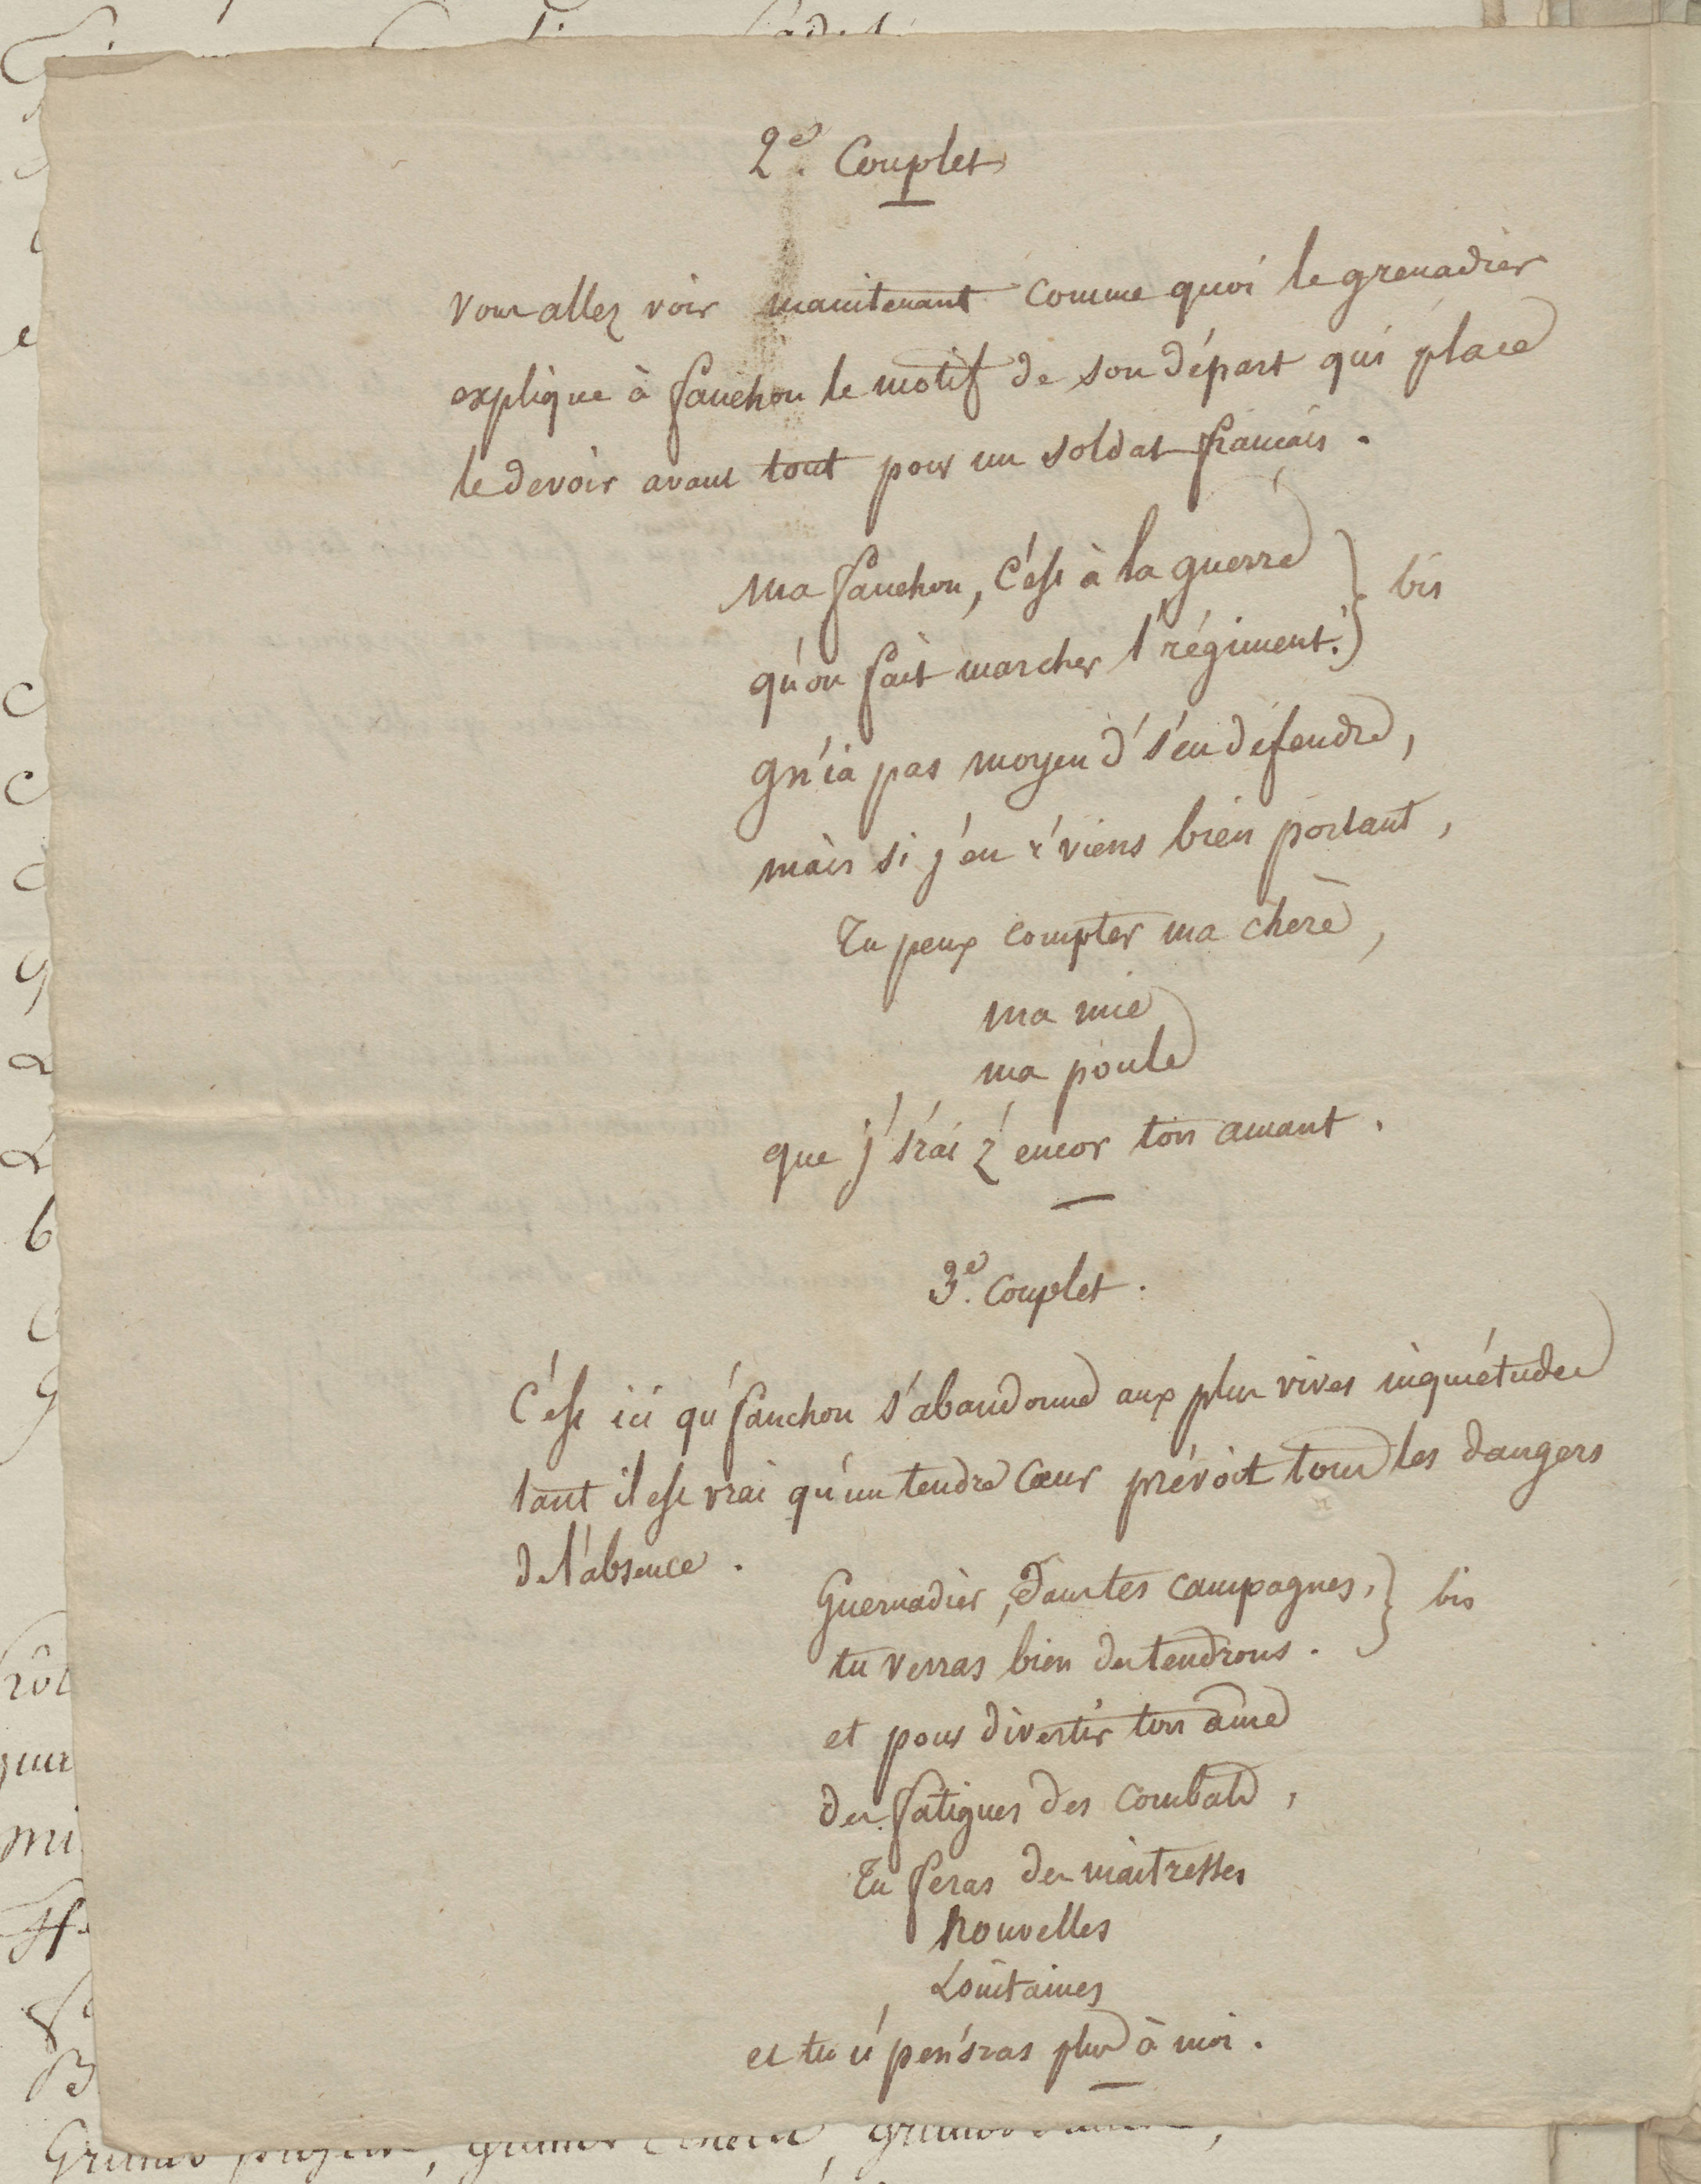 2e. Couplet
vous allez voir maintenant comme quoi le grenadier
explique à fanchon le motif de son départ qui place
le devoir avant tout pour un soldat francais.
ma fanchon, c'est à la guerre } bis
qu'on fait marcher l'régiment.
gn'ia pas moyen d's'en défendre,
mais si j'en r'viens bien portant,
Tu peux compter ma chere,
ma mie
ma poule
que j's'rai z'encor ton amant.
3e. Couplet.
C'est ici qu'fanchon s'abandonne aux plus vives inquiétudes
tant il est vrai qu'un tendre cœur prévoit tous les dangers
de l'absence.
Guernadier, dans tes campagnes, } bis
tu verras bien des tendrons.
et pour divertir ton ame
des fatigues des combats,
Tu feras des maitresses
nouvelles
Lointaines
et tu n'pens'ras plus à moi.